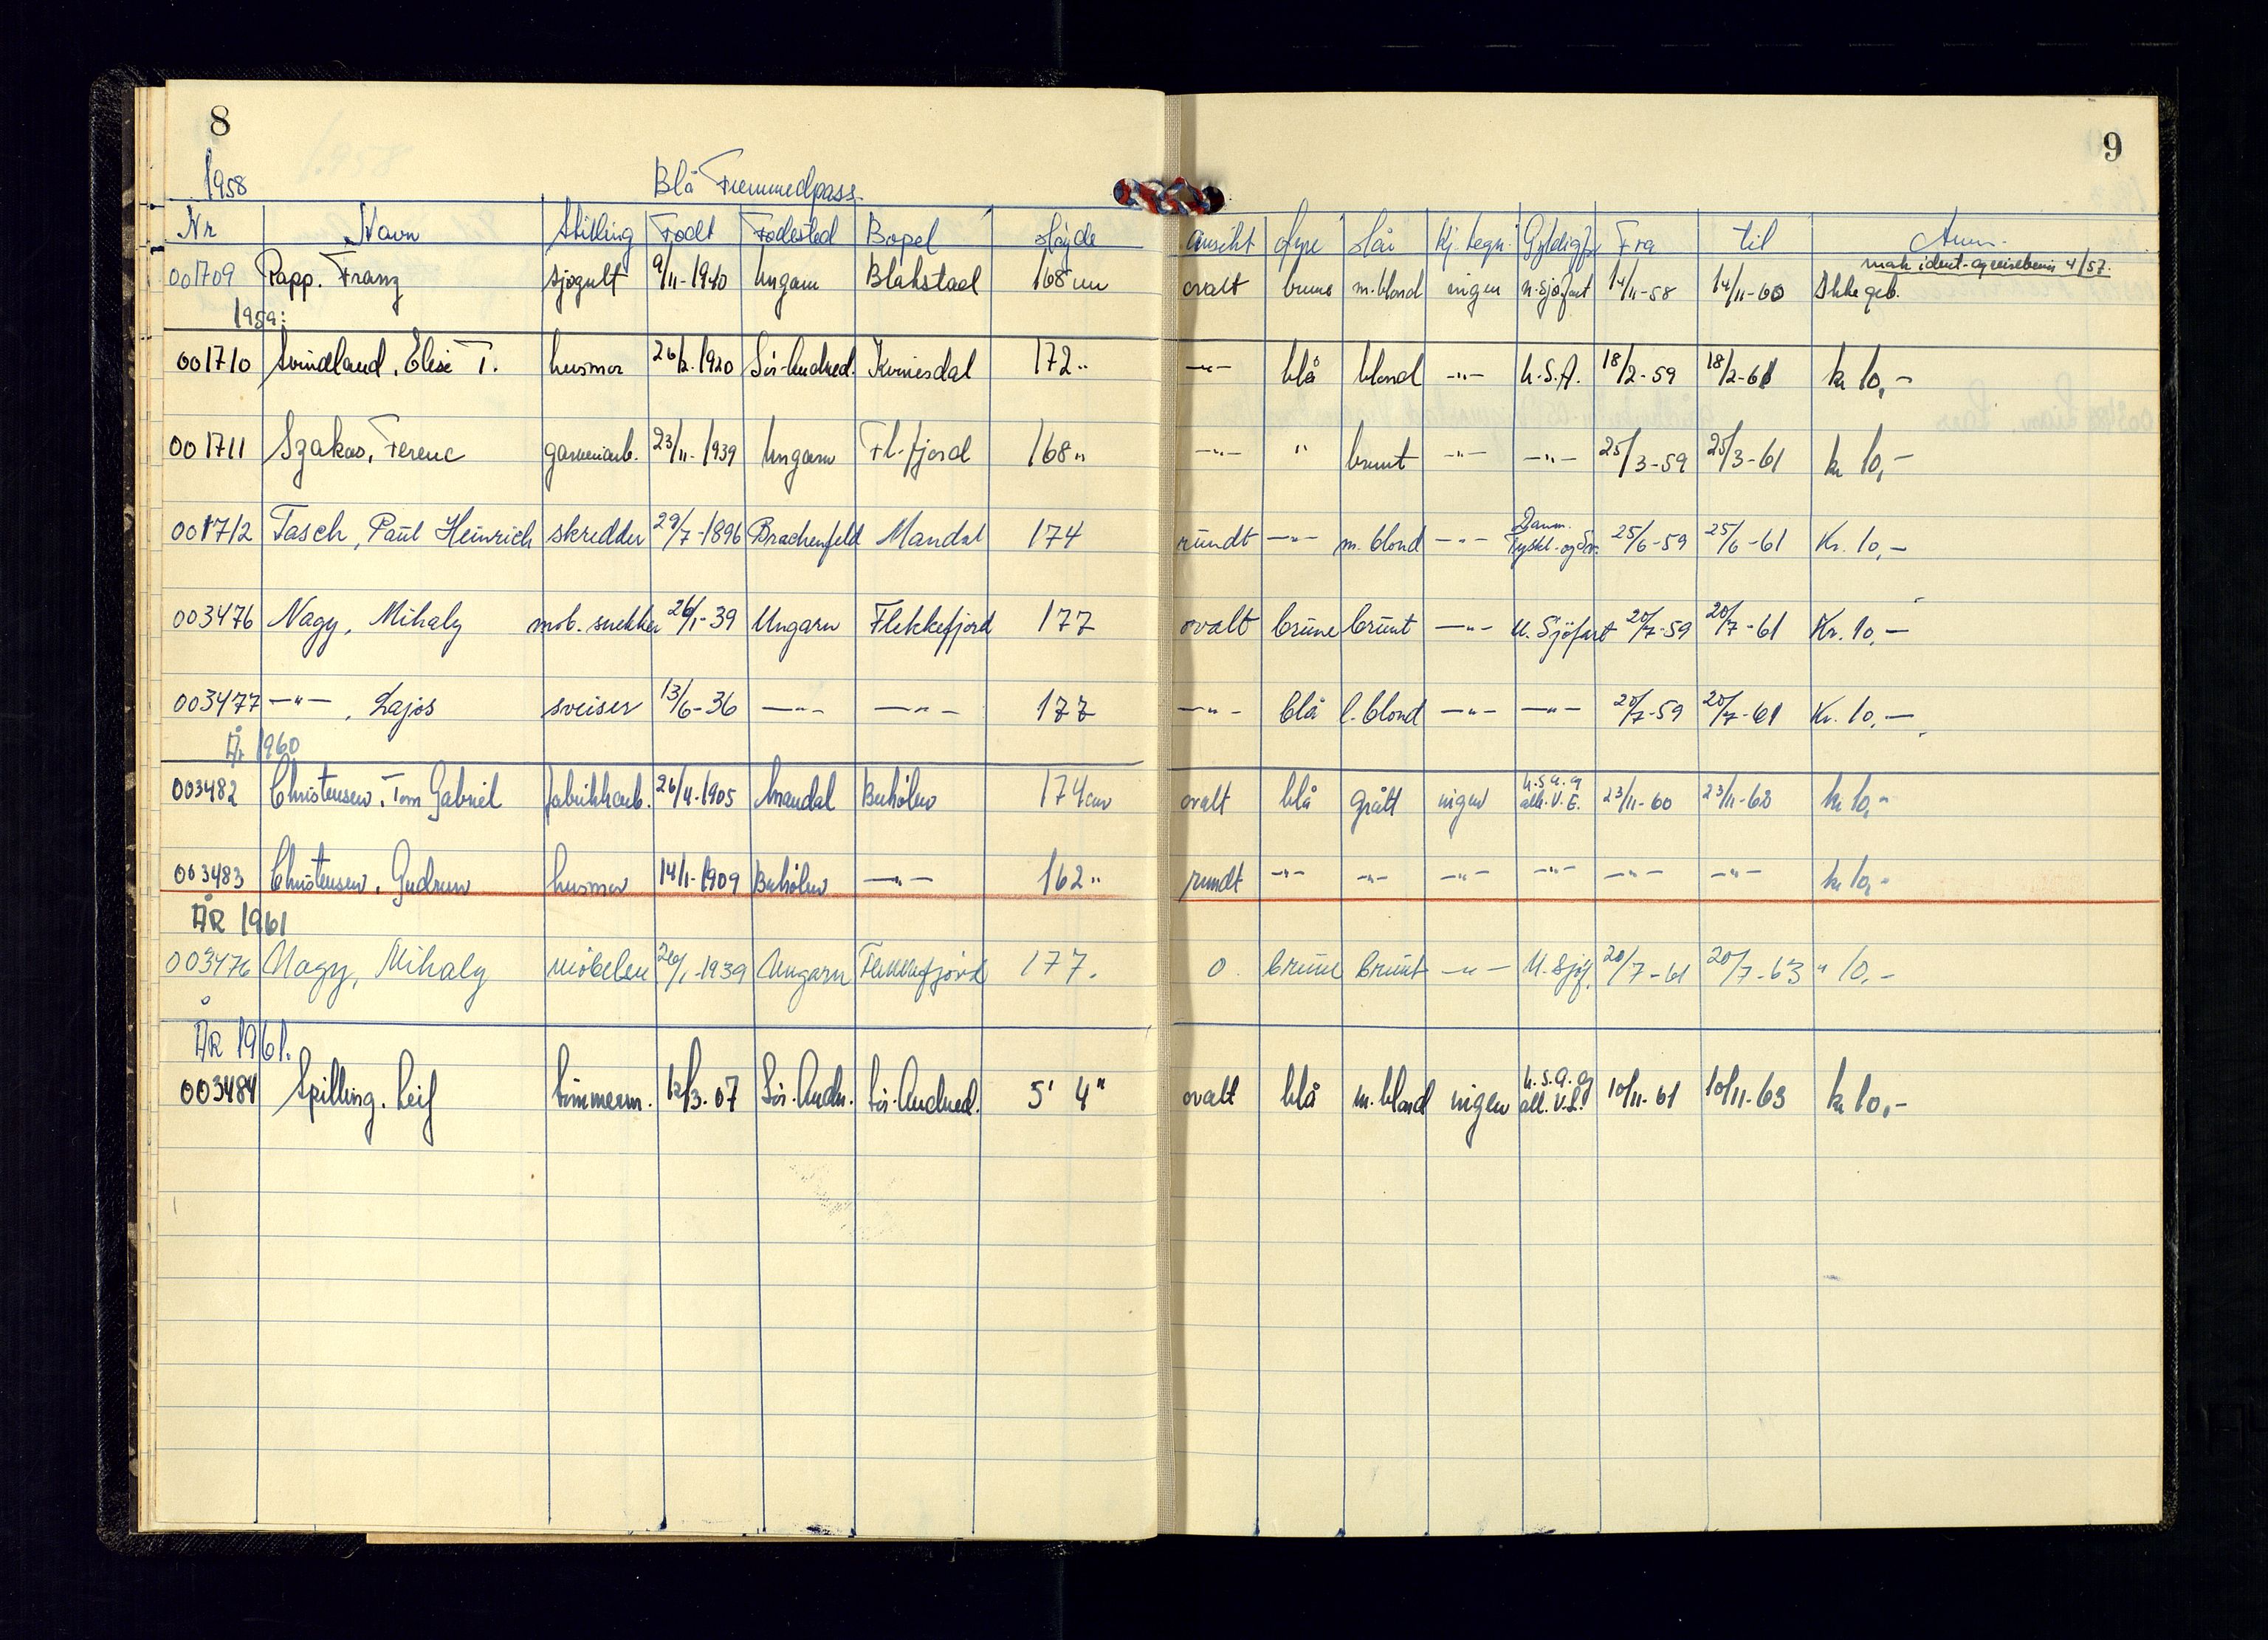 8
9
1958
Blå Fremmedpass
Nr Navn Stilling Født Fødested Bopel Høyde ansikt øyne Hår kj. tegn. Gyldigf. Fra til Anm.
001709 Papp. Franz sjøgutt 9/11-1940 Ungarn Blakstad 168 cm ovalt brune m.blond ingen u. sjøfart 14/11-58 14/11-60 Ikke geb.
1959:
001710 Svindland, Elise T. husmor 26/2.1920 Sör-Audned. Kvinesdal 172" -"- blå blond -"- U.S.A. 18/2-59 18/2-61 kr 10,-
001711 Szakas, Ferenc garveriarb. 23/11-1939 Ungarn Fl.fjord 168" -"- " brunt -"- -"- 25/3-59 25/3-61 kr 10,-
001712 Tasch, Paul Heinrich skredder 29/7-1896 Brachenfeld Mandal 174 rundt -"- m. blond -"- Danm. Tyskl. og Sv. 25/6-59 25/6-61 Kr. 10,-
003476 Nagy, Mihaly möb. snekker 26/1-39 Ungarn Flekkefjord 177 ovalt brune brunt -"- U. Sjöfart 20/7-59 20/7-61 Kr. 10,-
003477 -"-, Lajos sveiser 13/6-36 -"- -"- 177 -"- blå l. blond -"- -"- 20/7-59 20/7-61 Kr. 10,-
År 1960
003482 Christensen, Tom Gabriel fabrikkarb. 26/4-1905 Mandal 174 cm ovalt blå grått ingen U.S.A. og 23/11-60 23/11-62 kr 10,-
003483 Christensen, Gudrun husmor 14/1-1909 -"- 162" rundt -"- -"- -"- -"- -"- -"- kr 10,-
ÅR 1961
003476 Nagy, Mihaly 26/1-1939 Ungarn Flekkefjord 177. O. brune brunt -"- U. Sjöf. 20/7-61 20/7-63 " 10,-
ÅR 1961.
003484 Spilling, Leif tömmerm. 12/3-07 Sör.Audn. Sör.Audned. 5' 4" ovalt blå m. blond ingen U.S.A. og 10/11-61 10/11-63 kr 10,-